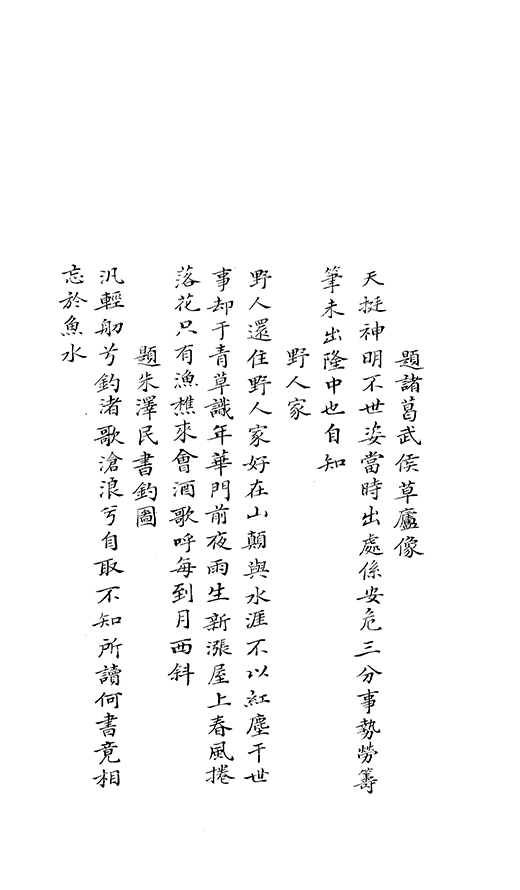 題諸葛武侯草廬像
天挺神明不世姿當時出處係安危三分事勢勞籌
筆未出隆中也自知
野人家
野人還住野人家好在山顛與水涯不以紅塵干世
事却于青草識年華門前夜雨生新漲屋上春風捲
落花只有漁樵來會酒歌呼每到月西斜
題朱澤民書釣圖
汎輕舠兮釣渚歌滄浪兮自取不知所讀何書竟相
忘於魚水